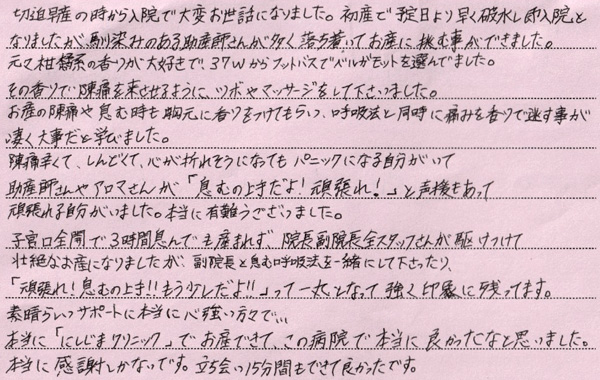 切迫早産の時から入院で大変お世話になりました。初産で予定日より早く破水し即入院と
なりましたが、馴染みのある助産師さんが多く落ち着いてお産に挑む事ができました。
元々柑橘系の香りが大好きで、37Wからフットバスでベルガモットを選んでました。
その香りで陣痛を来させるように、ツボやマッサージをして下さいました。
お産の陣痛や息む時も胸元に香りをつけてもらい、呼吸法と同時に痛みを香りで逃す事が
凄く大事だと学びました。
陣痛辛くて、しんどくて、心が折れそうになってもパニックになる自分がいて
助産師さんやアロマさんが「息むの上手だよ！頑張れ！」と声援もあって
頑張れる自分がいました。本当に有難うございました。
子宮口全開で3時間息んでも産まれず、院長副院長全スタッフさんが駆けつけて
壮絶なお産になりましたが、副院長と息む呼吸法を一緒にして下さったり、
「頑張れ！息むの上手!!もう少しだよ!!」って一丸となって強く印象に残ってます。
素晴らしいサポートに本当に心強い方々で…
本当に「にしじまクリニック」でお産できて、この病院で本当に良かったなと思いました。
本当に感謝しかないです。立ち会い15分間もできて良かったです。